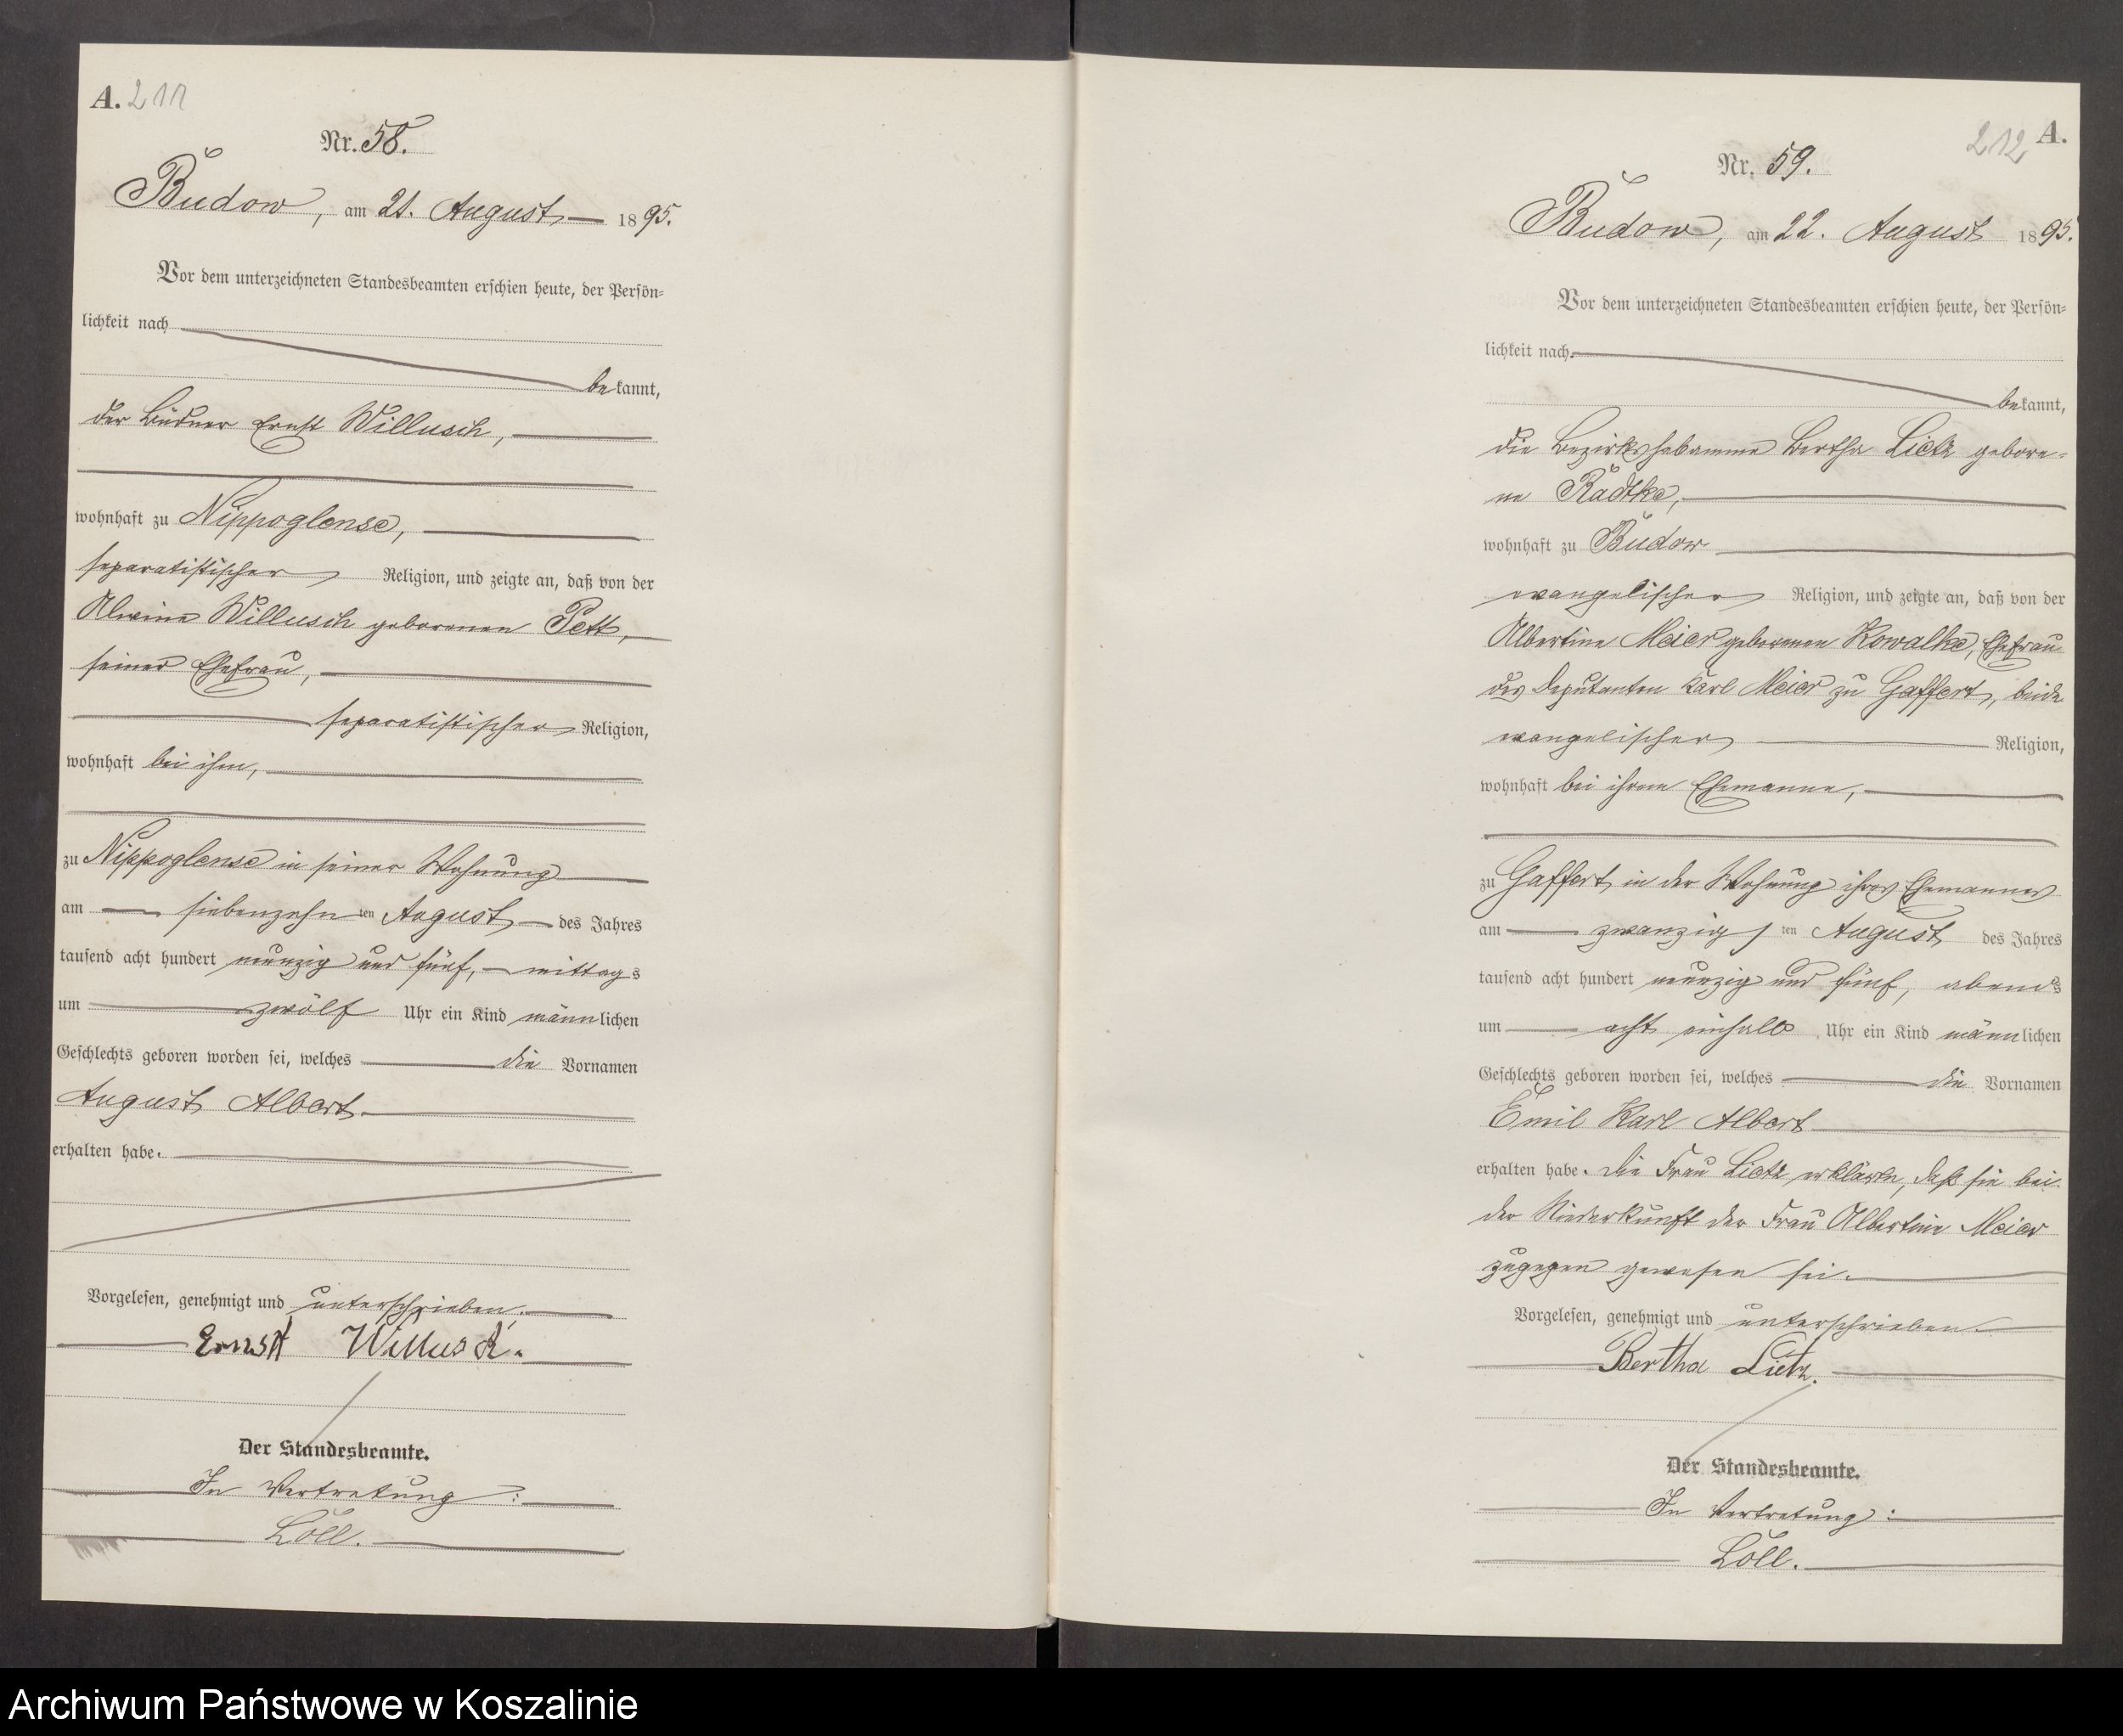 A. 211
Nr. 58.
Budow, am 21. August 1895.
Vor dem unterzeichneten Standesbeamten erschien heute, der Persön-
lichkeit nach
bekannt,
der Büdner Ernst Willusch,
wohnhaft zu Nippoglense,
separatistischer Religion, und zeigte an, daß von der
Alwine Willusch geborenen Pett,
seiner Ehefrau,
separatistischer Religion,
wohnhaft bei ihm,
zu Nippoglense in seiner Wohnung
am siebenzehnten August des Jahres
tausend acht hundert neunzig und fünf, mittags
um zwölf Uhr ein Kind männlichen
Geschlechts geboren worden sei, welches die Vornamen
August Albert
erhalten habe.
Vorgelesen, genehmigt und unterschrieben.
Ernst Willusch.
Der Standesbeamte.
In Vertretung:
Löll.
212 A.
Nr. 59.
Budow, am 22. August 1895.
Vor dem unterzeichneten Standesbeamten erschien heute, der Persön-
lichkeit nach
bekannt,
die Bezirkshebamme Bertha Lietz gebore-
ne Radtke,
wohnhaft zu Budow
evangelischer Religion, und zeigte an, daß von der
Albertine Meier geborenen Kowalke, Ehefrau
des Deputanten Karl Meier zu Gaffert, beide
evangelischer Religion,
wohnhaft bei ihrem Ehemanne,
zu Gaffert in der Wohnung ihres Ehemannes
am zwanzigsten August des Jahres
tausend acht hundert neunzig und fünf, abends
um acht einhalb Uhr ein Kind männlichen
Geschlechts geboren worden sei, welches die Vornamen
Emil Karl Albert
erhalten habe. Die Frau Lietz erklärte, daß sie bei
der Niederkunft der Frau Albertine Meier
zugegen gewesen sei.
Vorgelesen, genehmigt und unterschrieben.
Bertha Lietz.
Der Standesbeamte.
In Vertretung:
Löll.
Archiwum Państwowe w Koszalinie